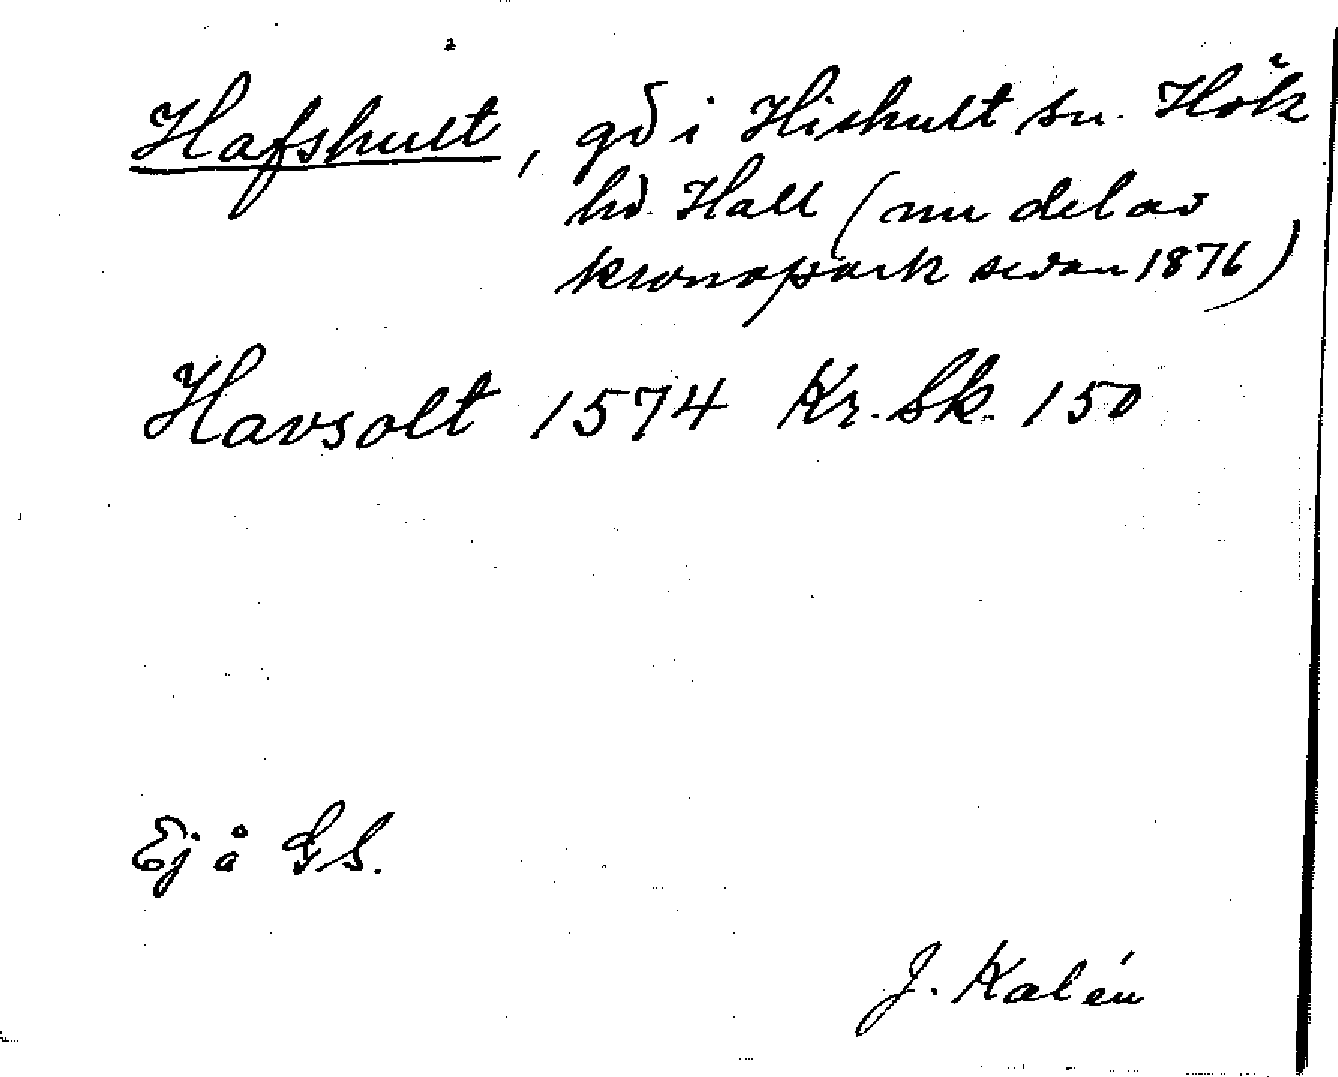 Hafshult, gd i Hishult sn. Hök
hd. Hall (nu del av
kronopark sedan 1876)
Havsolt 1574 Kr. Sk. 150
Ej å GS.
J. Kalén